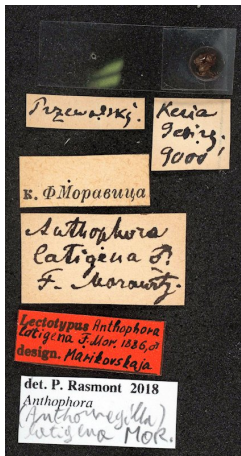 Przewalsky.
Keria
Gebirg.
9000'
к. Ф. Моравица
Anthophora
latigena ♂.
F. Morawitz.
Lectotypus Anthophora
latigena F. Mor. 1886, ♂
design. Marikovskaja
det. P. Rasmont 2018
Anthophora
(Anthomegilla)
latigena MOR.